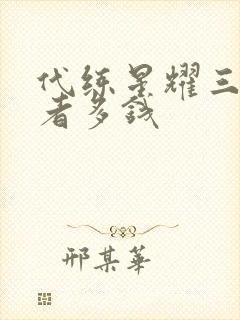 代练星耀三
者多钱
邢某华